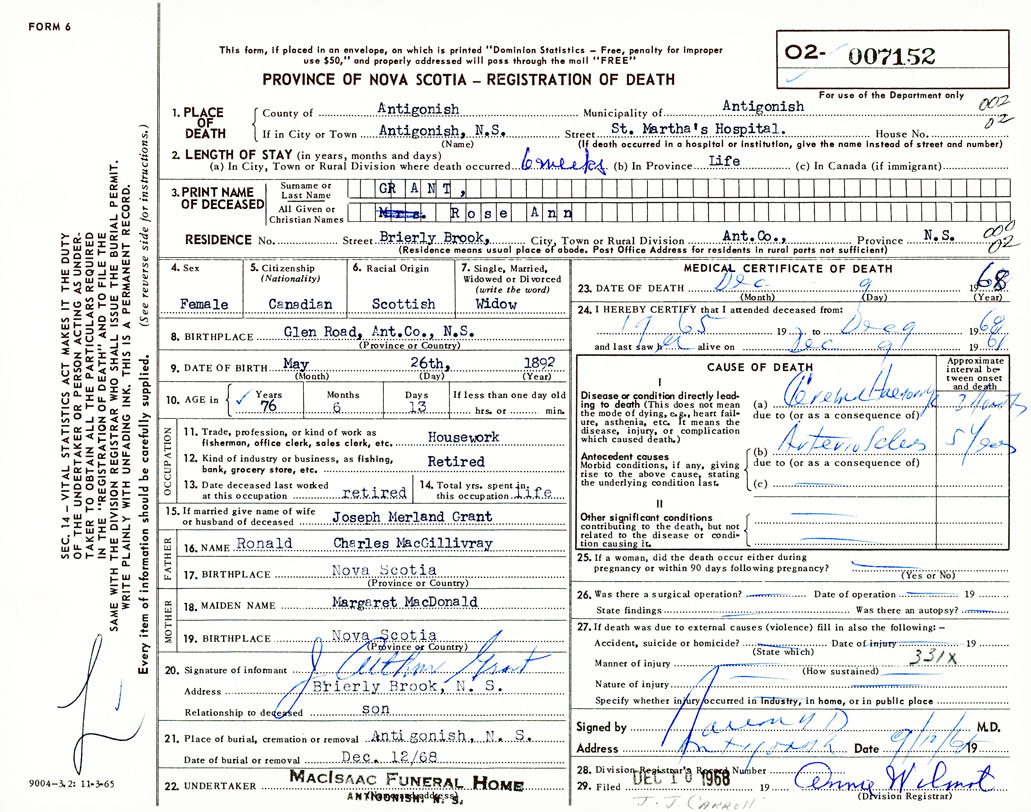 FORM 6
This form, if placed in an envelope, on which is printed "Dominion Statistics – Free, penalty for improper
use $50," and properly addressed will pass through the mail "FREE"
PROVINCE OF NOVA SCOTIA – REGISTRATION OF DEATH
O2- 007152
For use of the Department only
002
02
1. PLACE OF DEATH
County of Antigonish Municipality of Antigonish
If in City or Town Antigonish, N.S. Street St. Martha's Hospital. House No.
(Name) (If death occurred in a hospital or institution, give the name instead of street and number)
2. LENGTH OF STAY (in years, months and days)
(a) In City, Town or Rural Division where death occurred 6 weeks (b) In Province Life (c) In Canada (if immigrant)
3. PRINT NAME OF DECEASED
Surname or Last Name GRANT,
All Given or Christian Names Mrs. Rose Ann
RESIDENCE No. Street Brierly Brook, City, Town or Rural Division Ant.Co., Province N.S.
000
02
(Residence means usual place of abode. Post Office Address for residents in rural parts not sufficient)
4. Sex Female
5. Citizenship (Nationality) Canadian
6. Racial Origin Scottish
7. Single, Married, Widowed or Divorced (write the word) Widow
8. BIRTHPLACE Glen Road, Ant.Co., N.S.
(Province or Country)
9. DATE OF BIRTH May 26th, 1892
(Month) (Day) (Year)
10. AGE in Years 76 Months 6 Days 13 If less than one day old hrs. or min.
OCCUPATION
11. Trade, profession, or kind of work as fisherman, office clerk, sales clerk, etc. Housework
12. Kind of industry or business, as fishing, bank, grocery store, etc. Retired
13. Date deceased last worked at this occupation retired
14. Total yrs. spent in this occupation life
15. If married give name of wife or husband of deceased Joseph Merland Grant
FATHER
16. NAME Ronald Charles MacGillivray
17. BIRTHPLACE Nova Scotia
(Province or Country)
MOTHER
18. MAIDEN NAME Margaret MacDonald
19. BIRTHPLACE Nova Scotia
(Province or Country)
20. Signature of informant J Arthur Grant
Address Brierly Brook, N. S.
Relationship to deceased son
21. Place of burial, cremation or removal Antigonish, N. S.
Date of burial or removal Dec. 12/68
22. UNDERTAKER MacIsaac Funeral Home
ANTIGONISH, N. S.
MEDICAL CERTIFICATE OF DEATH
23. DATE OF DEATH Dec 9 1968
(Month) (Day) (Year)
24. I HEREBY CERTIFY that I attended deceased from:
1965 19 to Dec 9 1968
and last saw her alive on Dec 9 19
CAUSE OF DEATH
Approximate interval between onset and death
I
Disease or condition directly leading to death (This does not mean the mode of dying, e.g., heart failure, asthenia, etc. It means the disease, injury, or complication which caused death.)
(a)
due to (or as a consequence of)
Antecedent causes
Morbid conditions, if any, giving rise to the above cause, stating the underlying condition last.
(b) 5 Years
due to (or as a consequence of)
(c)
II
Other significant conditions
contributing to the death, but not related to the disease or condition causing it.
25. If a woman, did the death occur either during
pregnancy or within 90 days following pregnancy?
(Yes or No)
26. Was there a surgical operation? Date of operation 19
State findings Was there an autopsy?
27. If death was due to external causes (violence) fill in also the following: –
Accident, suicide or homicide? Date of injury 19
(State which)
Manner of injury 331X
(How sustained)
Nature of injury
Specify whether injury occurred in Industry, in home, or in public place
Signed by M.D.
Address Antigonish Date 19
28. Division Registrar's Record Number
29. Filed DEC 10 1968 19 Annie Wilmot
(Division Registrar)
J. J. CARROLL
SEC. 14 – VITAL STATISTICS ACT MAKES IT THE DUTY
OF THE UNDERTAKER OR PERSON ACTING AS UNDER-
TAKER TO OBTAIN ALL THE PARTICULARS REQUIRED
IN THE "REGISTRATION OF DEATH" AND TO FILE THE
SAME WITH THE DIVISION REGISTRAR WHO SHALL ISSUE THE BURIAL PERMIT.
WRITE PLAINLY WITH UNFADING INK. THIS IS A PERMANENT RECORD.
Every item of information should be carefully supplied. (See reverse side for instructions.)
9004-3.2: 11-3-65